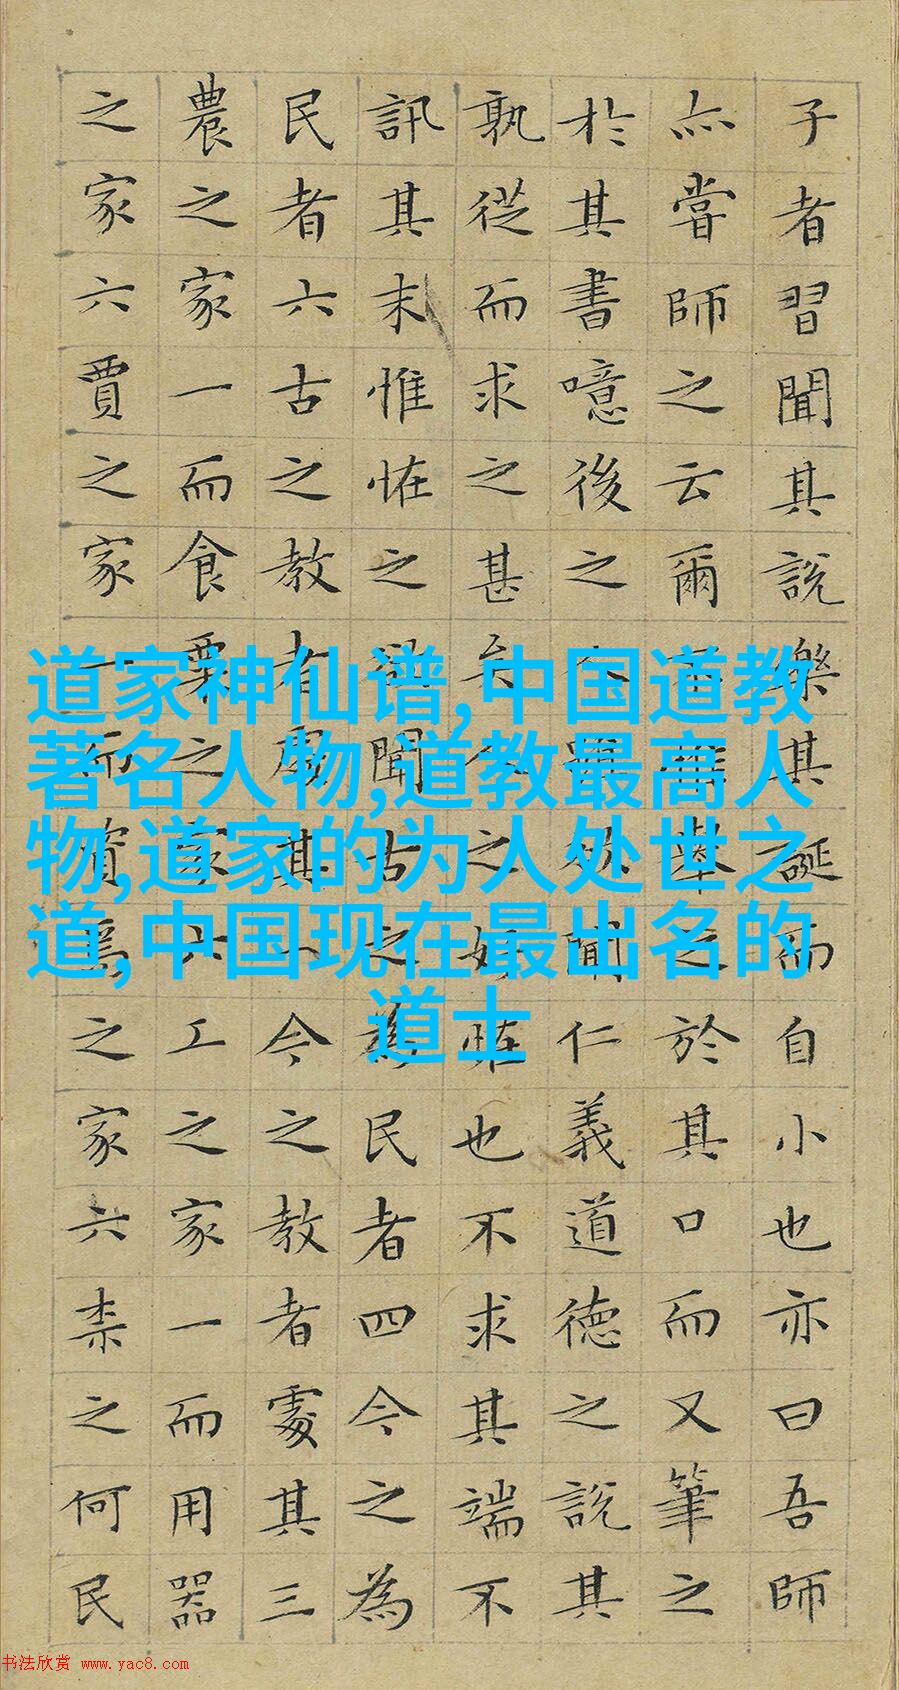 子者習聞其說樂其誕而自小也亦曰吾師
亦嘗師之云爾不惟舉之於其口而又筆之
於其書噫後之人雖欲聞仁義道德之說其
孰從而求之甚矣人之好怪也不求其端不
訊其末惟怪之欲聞古之為民者四今之為
民者六古之教者處其一今之教者處其三
農之家一而食粟之家六工之家一而用器
之家六賈之家一而資焉之家六柰之何民
道家神仙谱,中国道教
著名人物,道教最高人
物,道家的为人处世之
道,中国现在最出名的
道士
书法欣赏 www.yac8.com